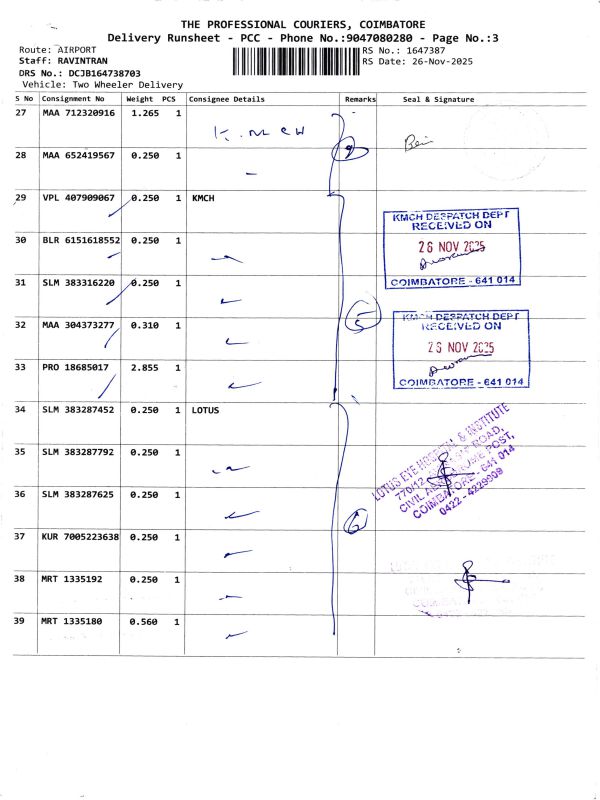 THE PROFESSIONAL COURIERS, COIMBATORE
Delivery Runsheet - PCC - Phone No.:9047080280 - Page No.:3
Route: AIRPORT
RS No.: 1647387
Staff: RAVINTRAN
RS Date: 26-Nov-2025
DRS No.: DCJB164738703
Vehicle: Two Wheeler Delivery
S No Consignment No Weight PCS Consignee Details Remarks Seal & Signature
27 MAA 712320916 1.265 1
28 MAA 652419567 0.250 1
29 VPL 407909067 0.250 1 KMCH
KMCH DESPATCH DEPT
RECEIVED ON
26 NOV 2025
COIMBATORE - 641 014
30 BLR 6151618552 0.250 1
31 SLM 383316220 0.250 1
32 MAA 304373277 0.310 1
5
KMCH DESPATCH DEPT
RECEIVED ON
26 NOV 2025
COIMBATORE - 641 014
33 PRO 18685017 2.855 1
34 SLM 383287452 0.250 1 LOTUS
LOTUS EYE HOSPITAL & INSTITUTE
770/12 ROAD,
CIVIL POST,
COIMBATORE - 641 014
0422 - 4229909
35 SLM 383287792 0.250 1
36 SLM 383287625 0.250 1
6
37 KUR 7005223638 0.250 1
38 MRT 1335192 0.250 1
39 MRT 1335180 0.560 1